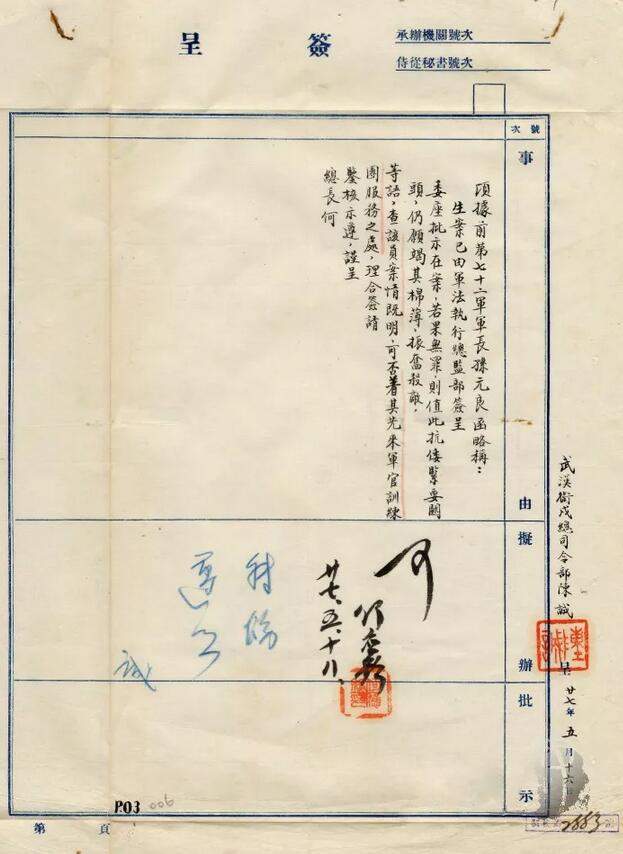 簽呈
承辦機關號次
侍從秘書號次
號次
事由
擬辦
批示
武漢衛戍總司令部陳誠 呈 廿七年五月十六
頃據前第七十二軍軍長孫元良函略稱：
生案已由軍法執行總監部簽呈
委座批示在案，若果無罪，則值此抗倭緊要關
頭，仍願竭其棉薄，振奮殺敵，
等語，查該員案情既明，可否着其先來軍官訓練
團服務之處，理合簽請
鑒核示遵，謹呈
總長何
可
何應欽
廿七、五、十八、
誠
P.03
006
第 頁
2883